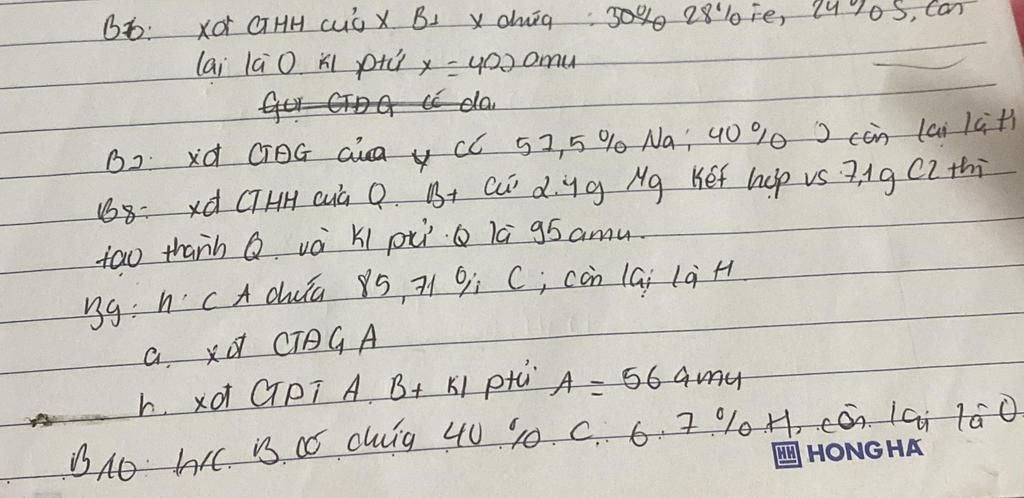 B6: xđ CTHH của X. Bt X chứa : 30% 28% Fe, 24% S, còn
lại là O. Kl ptử X = 400 amu
Gọi CTĐG có dạ
B7: xđ CTĐG của Y có 57,5% Na; 40% O còn lại là H
B8: xđ CTHH của Q. Bt cứ 2.4g Mg kết hợp vs 7,1g Cl2 thì
tạo thành Q. và Kl ptử Q là 95amu.
B9: h.c A chứa 85,71% C; còn lại là H
a. xđ CTĐG A
b. xđ CTPT A. Bt Kl ptử A = 56 amu
B10: h/c B có chứa 40% C. 6.7% H, còn lại là O
HH HONG HA